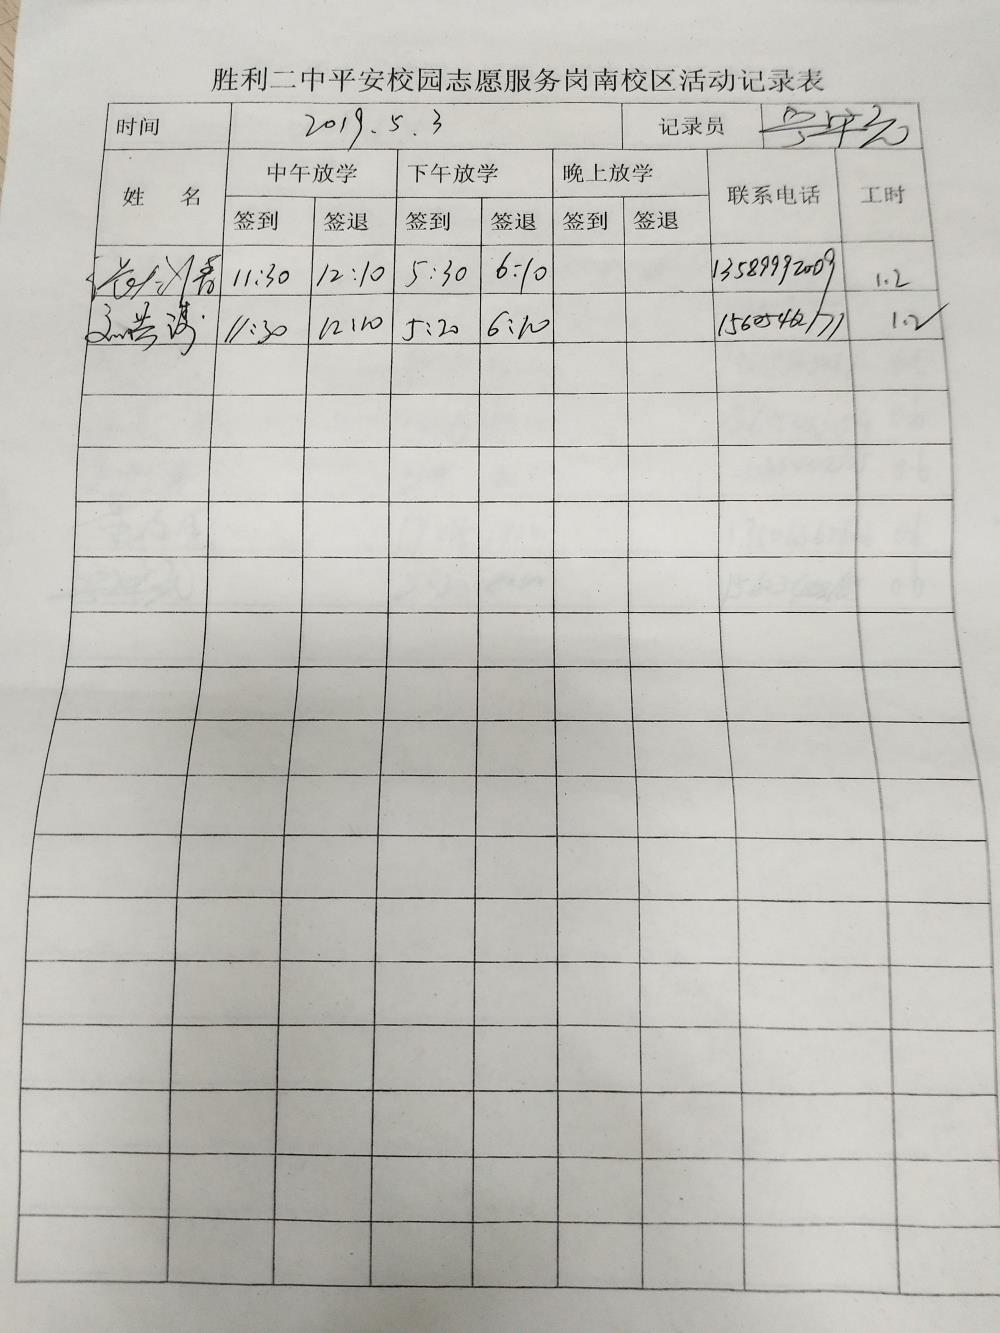 胜利二中平安校园志愿服务岗南校区活动记录表
时间 2019.5.3 记录员
姓 名 中午放学 下午放学 晚上放学 联系电话 工时
签到 签退 签到 签退 签到 签退
11:30 12:10 5:30 6:10 13589992009 1.2
11:30 12:10 5:20 6:10 15605462171 1.2